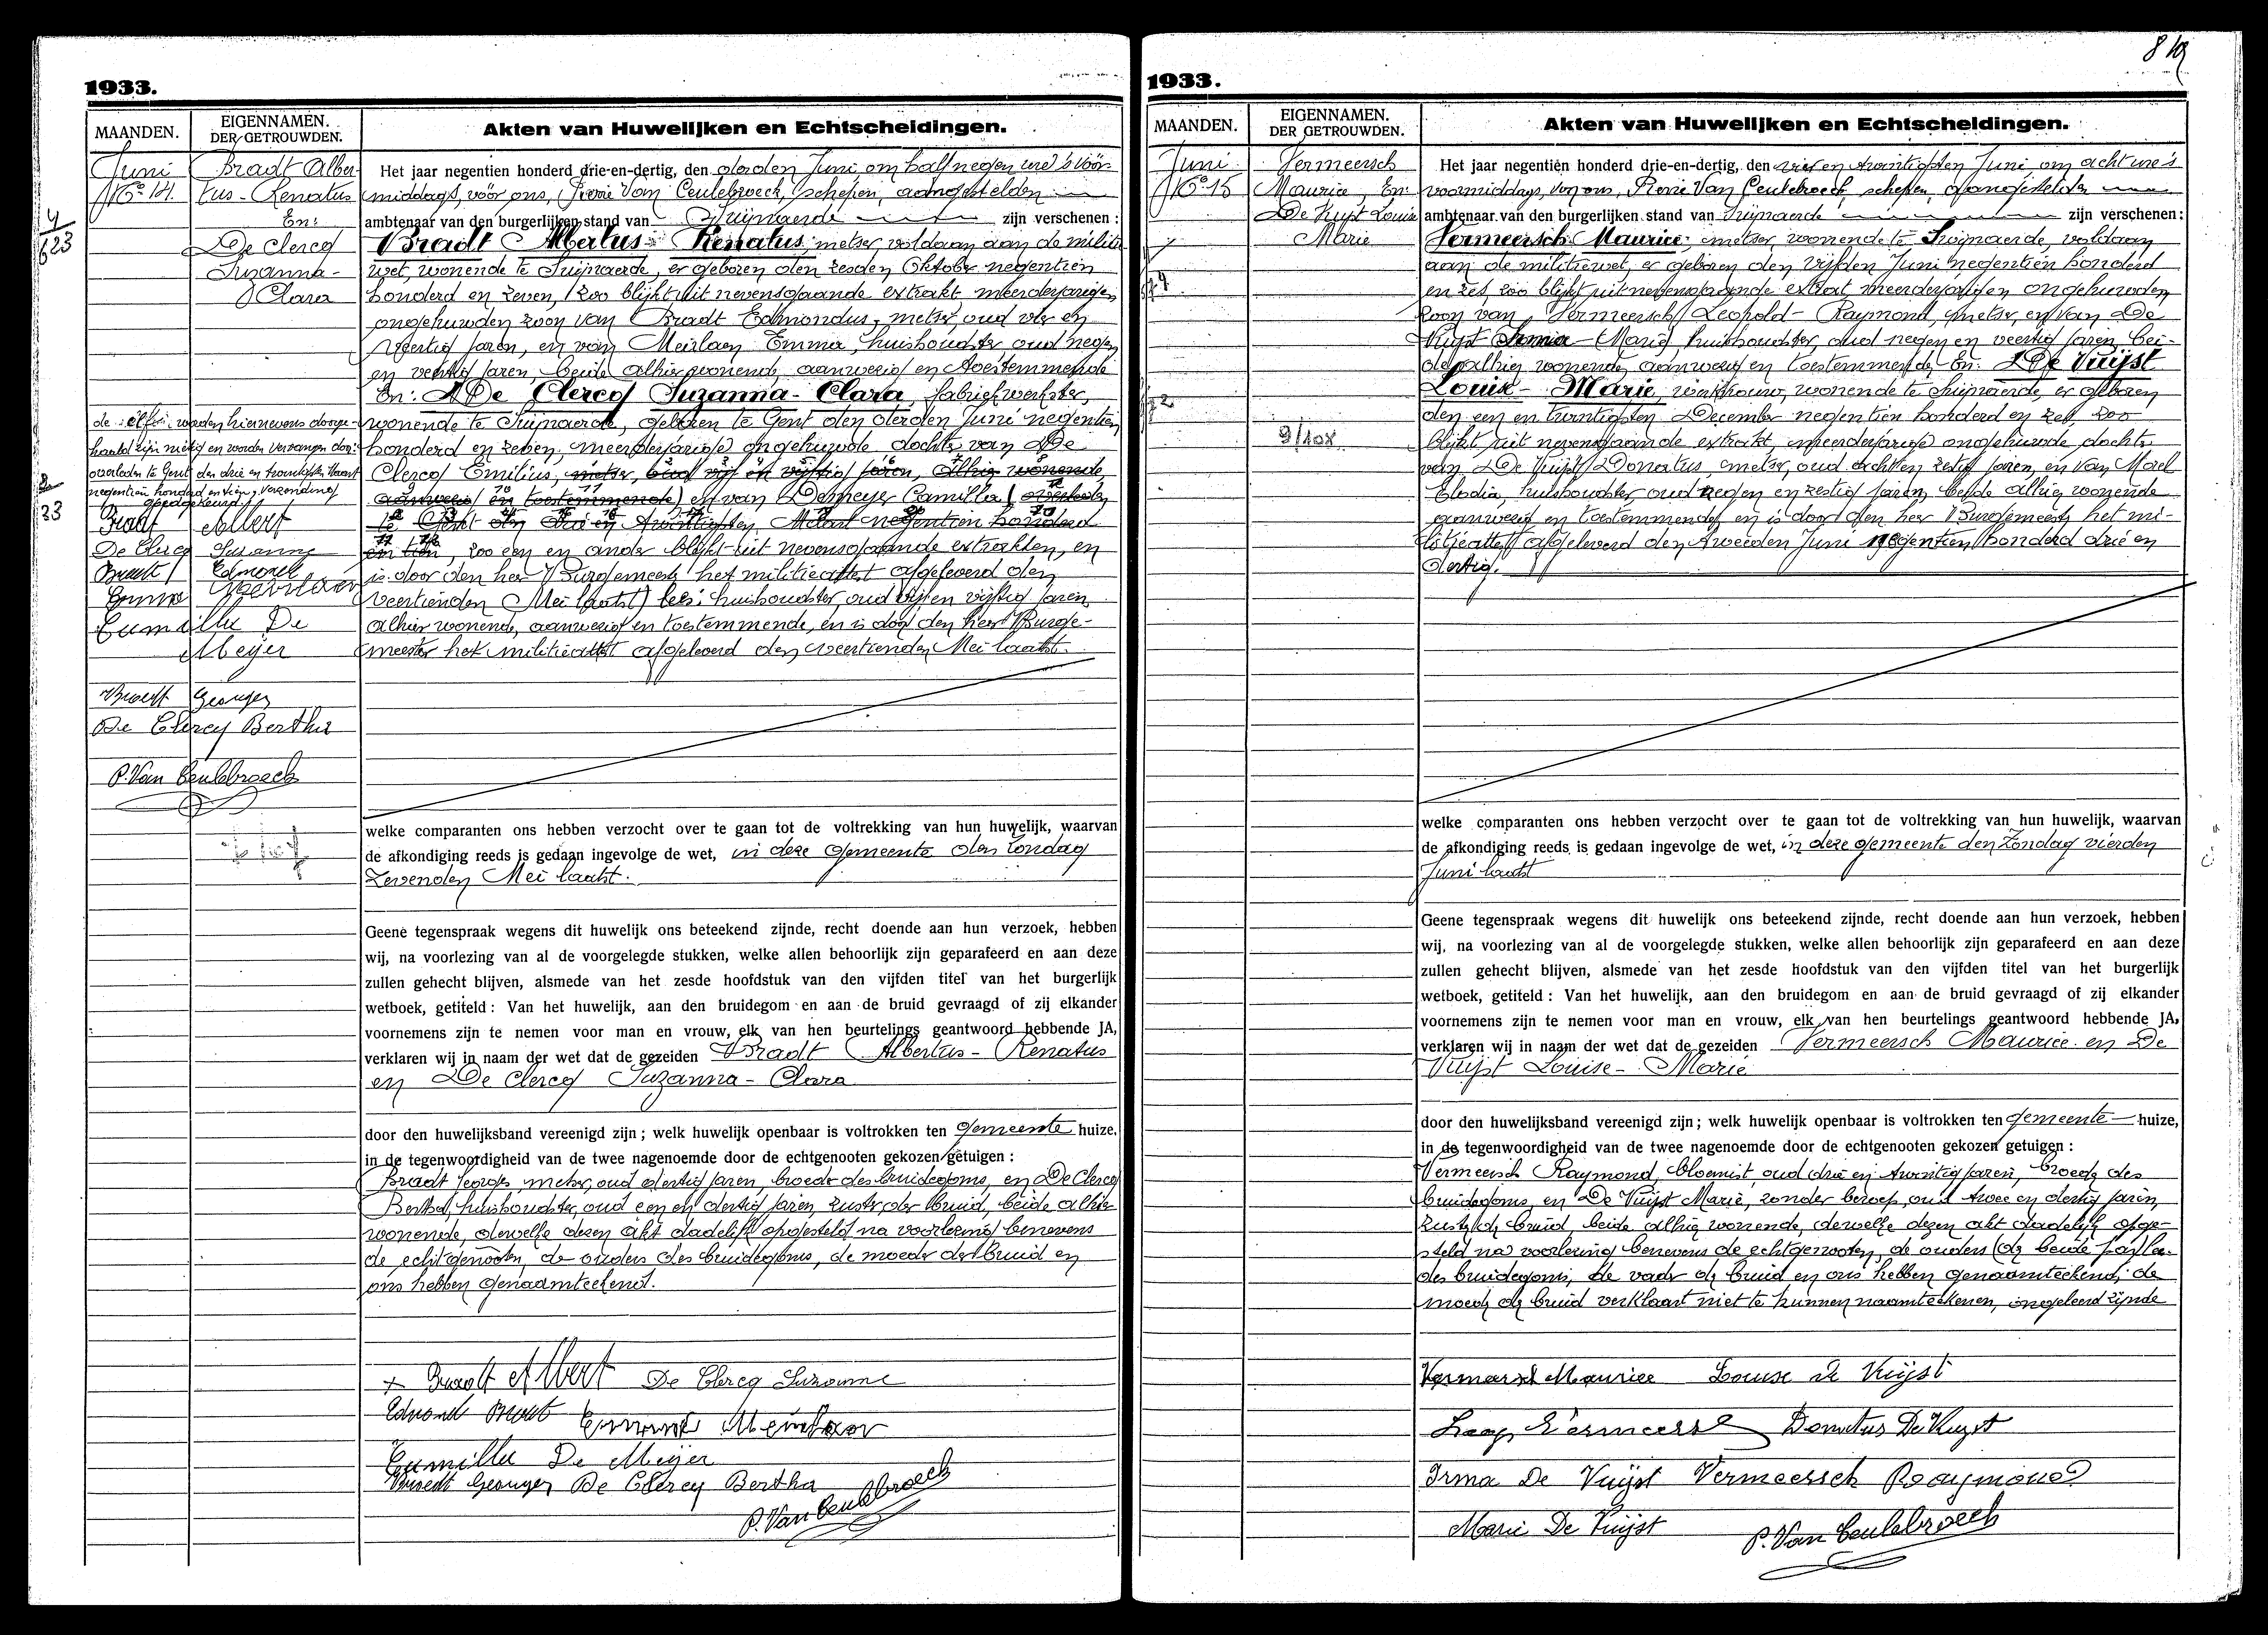 1933.
MAANDEN.
EIGENNAMEN.
DER GETROUWDEN.
Akten van Huwelijken en Echtscheidingen.
Juni
No 14.
Bradt Alber
tus - Renatus
En:
De Clercq
Suzanna -
Clara
Het jaar negentien honderd drie-en-dertig, den derden Juni, om half negen ure 's voor-
middags, voor ons, Pierre Van Ceulebroeck, schepen, aangestelden
ambtenaar van den burgerlijken stand van Zwijnaerde zijn verschenen :
Bradt Albertus - Renatus, metser, voldaan aan de militie
wet, wonende te Zwijnaerde, er geboren den zesden Oktober negentien
honderd en zeven, zoo blijkt uit nevensgaande extrakt meerderjarigen
ongehuwden zoon van Bradt Edmondus, metser, oud
veertig jaren, en van Meirlaen Emma, huishoudster oud negen
en veertig jaren, beide alhier wonende, aanwezig en toestemmende
En: De Clercq Suzanna - Clara, fabriekwerkster,
wonende te Zwijnaerde, geboren te Gent den derden Juni negentien
honderd en zeven, meerderjarige ongehuwde dochter van De
Clercq Emilius, metser, oud vijf en vijftig jaren, alhier wonende,
aanwezig en toestemmende) en van Demeyer Camilla (overleden
te Gent den drie en twintigsten Maart negentien honderd
en tien, zoo een en ander blijkt uit nevensgaande extrakten, en
is door den heer Burgemeester het militieattest afgeleverd den
veertienden Mei laatst) lees: huishoudster, oud vijf en vijftig jaren,
alhier wonende, aanwezig en toestemmende, en is door den heer Burge-
meester het militieattest afgeleverd den veertienden Mei laatst.
de elf woorden hiernevens doorge-
haald zijn nietig en worden vervangen door:
overleden te Gent den drie en twintigsten Maart
negentien honderd en tien, verzending
goedgekeurd
Bradt Albert
De Clercq Suzanne
Bradt Edmond
Emma Meirlaen
Camilla De
Meijer
Bradt Georges
De Clercq Bertha
P. Van Ceulebroeck
welke comparanten ons hebben verzocht over te gaan tot de voltrekking van hun huwelijk, waarvan
de afkondiging reeds is gedaan ingevolge de wet, in deze gemeente den Zondag
zevenden Mei laatst.
Geene tegenspraak wegens dit huwelijk ons beteekend zijnde, recht doende aan hun verzoek, hebben
wij, na voorlezing van al de voorgelegde stukken, welke allen behoorlijk zijn geparafeerd en aan deze
zullen gehecht blijven, alsmede van het zesde hoofdstuk van den vijfden titel van het burgerlijk
wetboek, getiteld : Van het huwelijk, aan den bruidegom en aan de bruid gevraagd of zij elkander
voornemens zijn te nemen voor man en vrouw, elk van hen beurtelings geantwoord hebbende JA,
verklaren wij in naam der wet dat de gezeiden Bradt Albertus - Renatus
en De Clercq Suzanna - Clara
door den huwelijksband vereenigd zijn ; welk huwelijk openbaar is voltrokken ten gemeente huize.
in de tegenwoordigheid van de twee nagenoemde door de echtgenooten gekozen getuigen :
Bradt Georges, metser, oud dertig jaren, broeder des bruidegoms, en De Clercq
Bertha, huishoudster, oud een en dertig jaren, zuster der bruid, beide alhier
wonende, dewelke dezen akt dadelijk opgesteld na voorlezing benevens
de echtgenooten, de ouders des bruidegoms, de moeder der bruid en
ons hebben genaamteekend.
Bradt Albert De Clercq Suzanne
Edmond Bradt Emma Meirlaen
Camilla De Meijer
Bradt Georges De Clercq Bertha
P. Van Ceulebroeck
1933.
MAANDEN.
EIGENNAMEN.
DER GETROUWDEN.
Akten van Huwelijken en Echtscheidingen.
Juni
No 15
Vermeersch
Maurice, En:
De Vuyst Louise
Marie
9/108
Het jaar negentien honderd drie-en-dertig, den vier en twintigsten Juni, om acht ure 's
voormiddags, voor ons, Pierre Van Ceulebroeck, schepen, aangestelden
ambtenaar van den burgerlijken stand van Zwijnaerde zijn verschenen :
Vermeersch Maurice, metser, wonende te Zwijnaerde, voldaan
aan de militiewet, er geboren den vijfden Juni negentien honderd
en zes, zoo blijkt uit nevensgaande extrakt meerderjarigen ongehuwden
zoon van Vermeersch Leopold - Raymond, metser, en van De
Vuyst Irma - Marie huishoudster, oud negen en veertig jaren, bei-
de alhier wonende, aanwezig en toestemmende En: De Vuijst
Louise - Marie, werkvrouw, wonende te Zwijnaerde, er geboren
den een en twintigsten December negentien honderd en zes, zoo
blijkt uit nevensgaande extrakt, meerderjarige ongehuwde dochter
van De Vuijst Donatus, metser, oud acht en zestig jaren, en van Morel
Elodia, huishoudster oud negen en zestig jaren, beide alhier wonende
aanwezig en toestemmende, en is door den heer Burgemeester het mi-
litieattest afgeleverd den tweeden Juni negentien honderd drie en
dertig.
welke comparanten ons hebben verzocht over te gaan tot de voltrekking van hun huwelijk, waarvan
de afkondiging reeds is gedaan ingevolge de wet, in deze gemeente den Zondag vierden
Juni laatst
Geene tegenspraak wegens dit huwelijk ons beteekend zijnde, recht doende aan hun verzoek, hebben
wij, na voorlezing van al de voorgelegde stukken, welke allen behoorlijk zijn geparafeerd en aan deze
zullen gehecht blijven, alsmede van het zesde hoofdstuk van den vijfden titel van het burgerlijk
wetboek, getiteld : Van het huwelijk, aan den bruidegom en aan de bruid gevraagd of zij elkander
voornemens zijn te nemen voor man en vrouw, elk van hen beurtelings geantwoord hebbende JA,
verklaren wij in naam der wet dat de gezeiden Vermeersch Maurice en De
Vuijst Louise - Marie
door den huwelijksband vereenigd zijn ; welk huwelijk openbaar is voltrokken ten gemeente huize,
in de tegenwoordigheid van de twee nagenoemde door de echtgenooten gekozen getuigen :
Vermeersch Raymond, bloemist, oud drie en twintig jaren, broeder des
bruidegoms, en De Vuijst Marie, zonder beroep, oud twee en dertig jaren,
zuster der bruid, beide alhier wonende, dewelke dezen akt dadelijk opge-
steld na voorlezing benevens de echtgenooten, de ouders
des bruidegoms, de vader der bruid en ons hebben genaamteekend, de
moeder der bruid verklaart niet te kunnen naamteekenen, ongeleerd zijnde
Vermeersch Maurice Louise De Vuijst
Leop Vermeersch Donatus De Vuyst
Irma De Vuijst Vermeersch Raymond
Marie De Vuijst P. Van Ceulebroeck